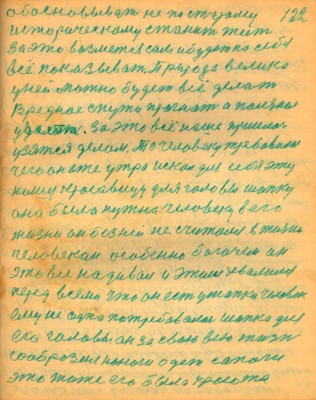 обосновывать не по старому 122
историческому станет жить
За это возмется сам и будет на себе
всё показывать. Природа велика
у ней можно будет всё делать
Вредное спуто прогнать а полезное
узять. За это всё наше пришлось
узятся делом. То человеку требовалось
чего он не утро искал для себя эту
кому красавицу для головы шапку
она была нужна человеку в его
жизни он без ней не считался в жизни
человеком особенно богачем он
это все надивал и этим хвалился
перед всеми что он есть у шапки человек
ему не одна потребовалась шапка для
его головы он за свою всю жизнь
сообразил на ноги одет сапоги
это тоже его была красота